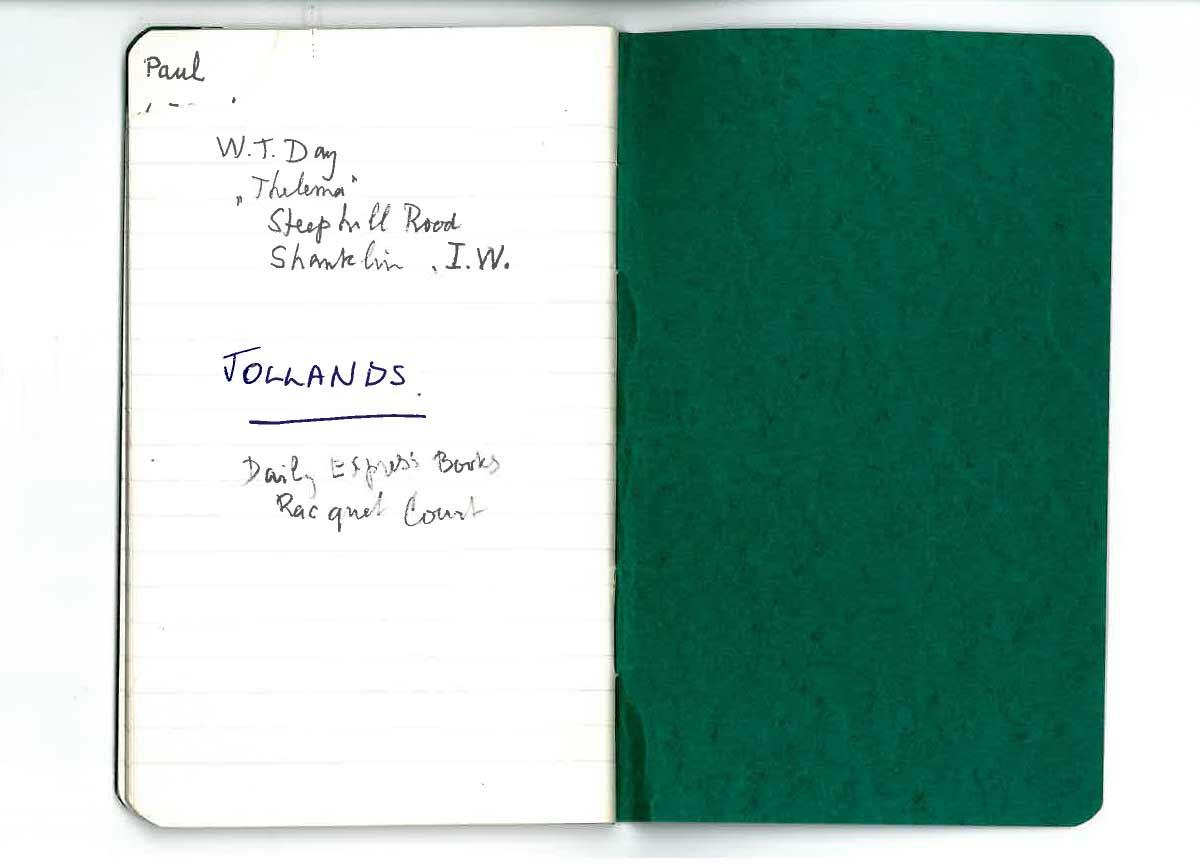 Paul
W.T. Day
„Thelema"
Steephill Road
Shanklin, I.W.
JOLLANDS.
Daily Express Books
Racquet Court